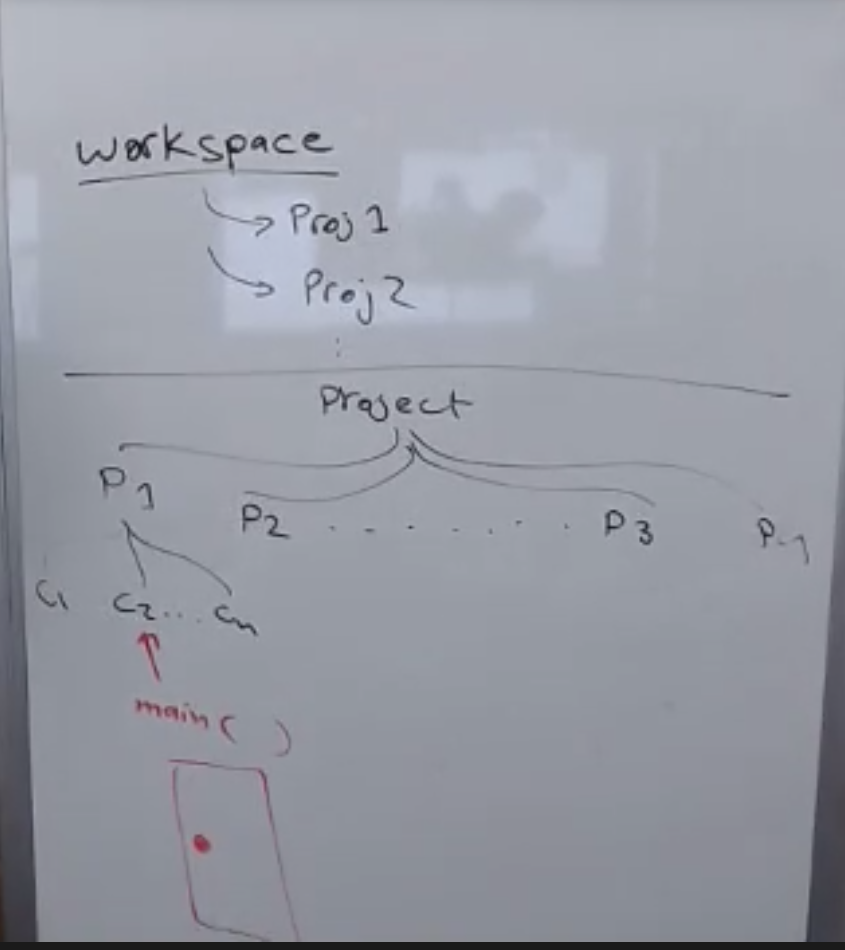 workspace
Proj 1
Proj 2
Project
P1
P2 . . . . . . . P3
C1 C2... Cn
main( )